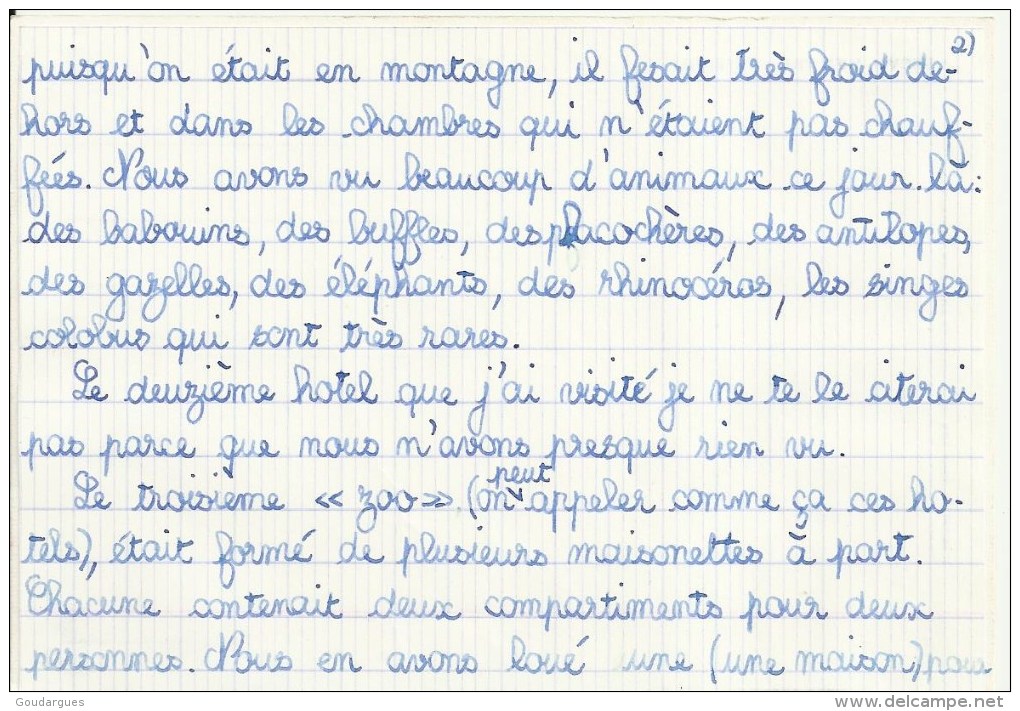 2)
puisqu'on était en montagne, il fesait très froid de-
hors et dans les chambres qui n'étaient pas chauf-
fées. Nous avons vu beaucoup d'animaux ce jour.là:
des babouins, des buffles, des phacochères, des antilopes,
des gazelles, des éléphants, des rhinocéros, les singes
colobus qui sont très rares.
Le deuzième hotel que j'ai visité je ne te le citerai
pas parce que nous n'avons presque rien vu.
peut
Le troisième « zoo » (on appeler comme ça ces ho-
tels), était formé de plusieurs maisonettes à part.
Chacune contenait deux compartiments pour deux
personnes. Nous en avons loué une (une maison) pour
Goudargues
www.delcampe.net